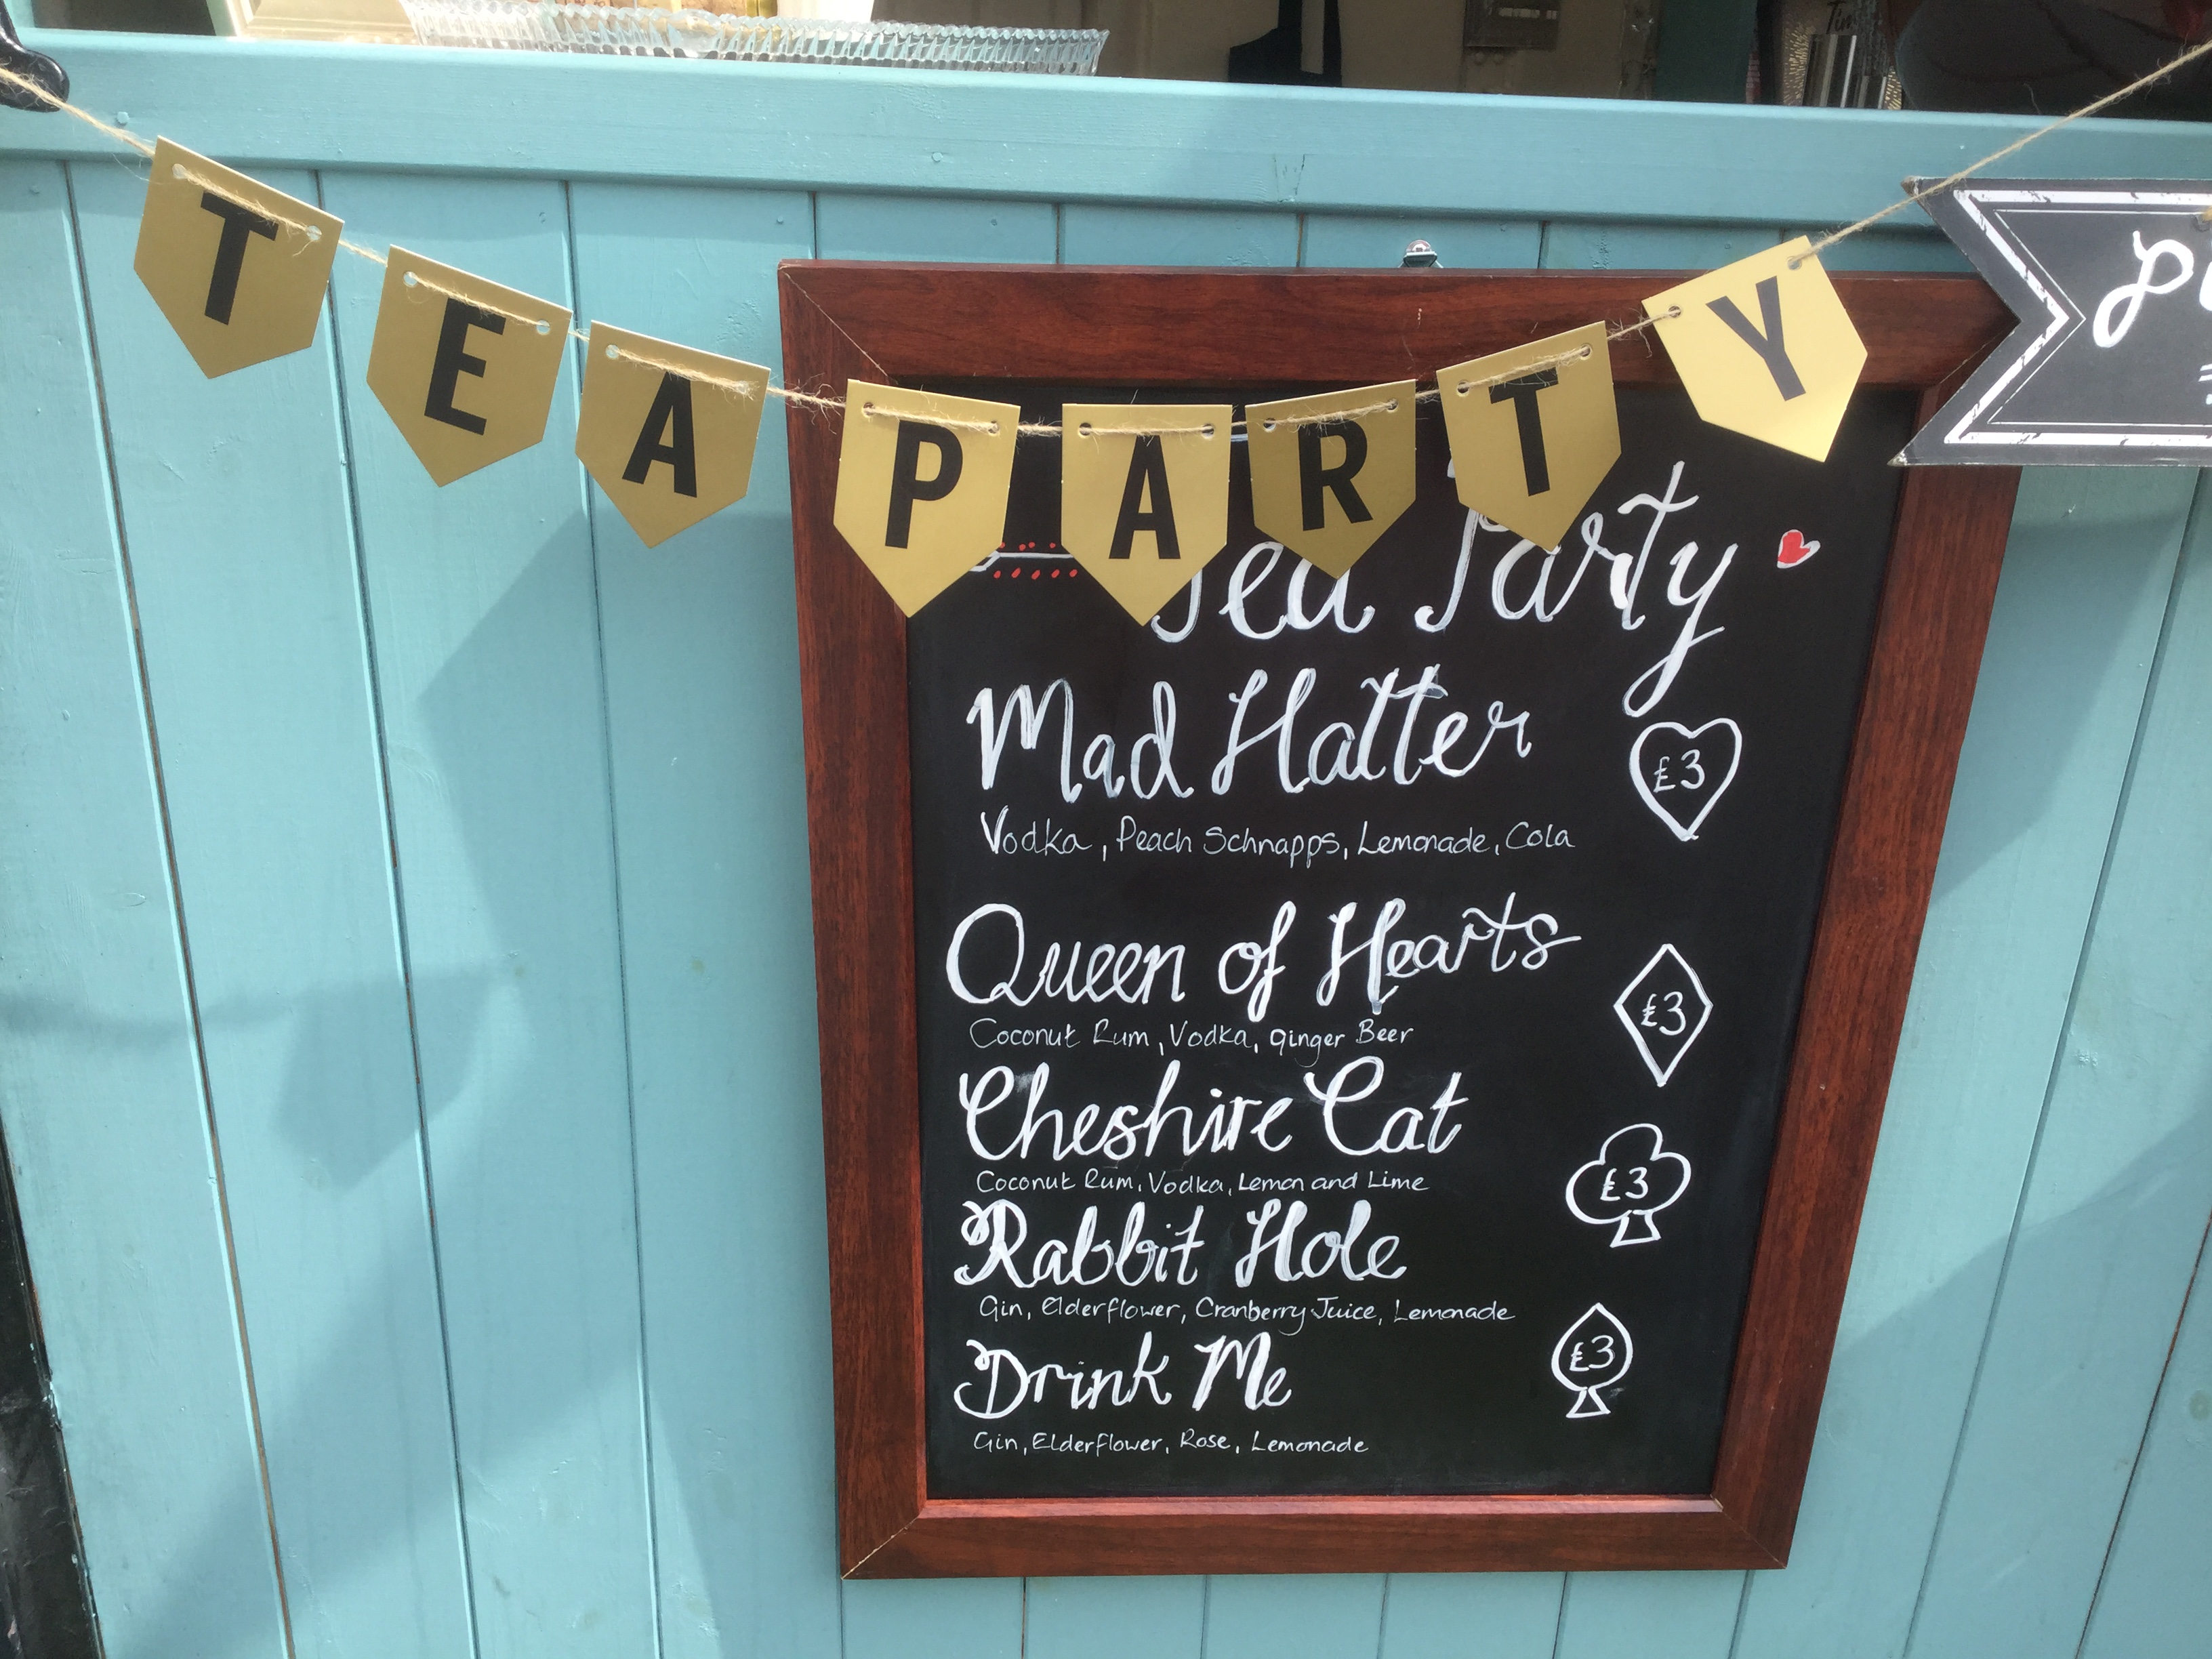 TEA PARTY
Tea Party
Mad Hatter
£3
Vodka, Peach Schnapps, Lemonade, Cola
Queen of Hearts
£3
Coconut Rum, Vodka, Ginger Beer
Cheshire Cat
£3
Coconut Rum, Vodka, Lemon and Lime
Rabbit Hole
Gin, Elderflower, Cranberry Juice, Lemonade
£3
Drink Me
Gin, Elderflower, Rose, Lemonade